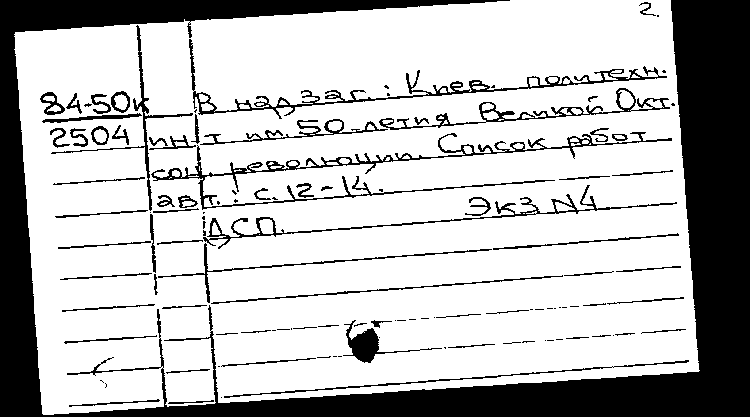 2
84-50к В надзаг.: Киев. политехн.
2504 ин-т им. 50-летия Великой Окт.
соц. революции. Список работ
авт.: с. 12-14.
ДСП. Экз N4